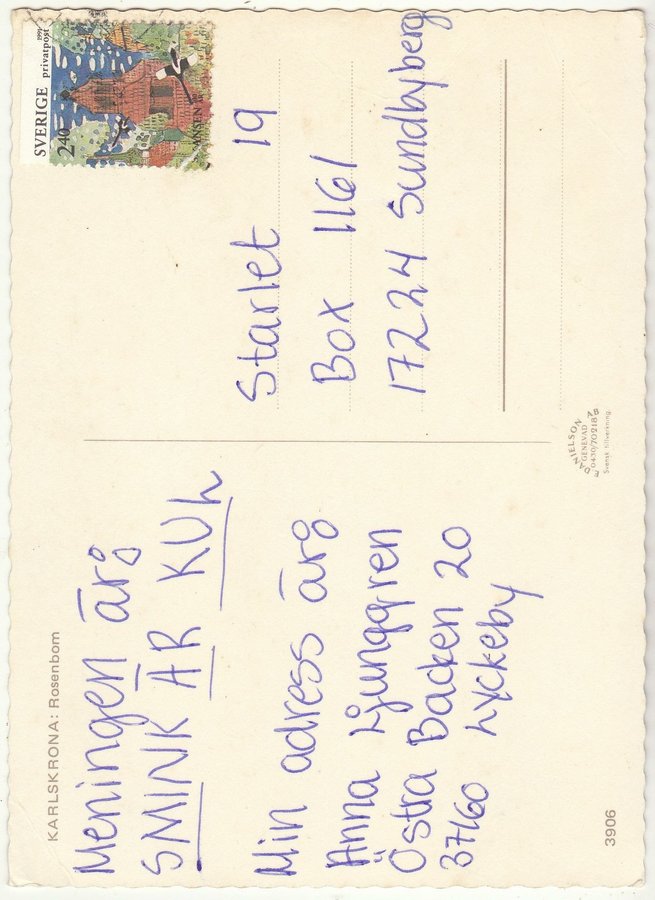 KARLSKRONA: Rosenbom
Meningen är:
SMINK ÄR KUL
Min adress är:
Anna Ljunggren
Östra Backen 20
37160 Lyckeby
3906
SVERIGE 2.40
privatpost
1991
Starlet 19
Box 1161
17224 Sundbyberg
F. DANIELSON AB
GENEVAD
0430/70218
Svensk tillverkning.